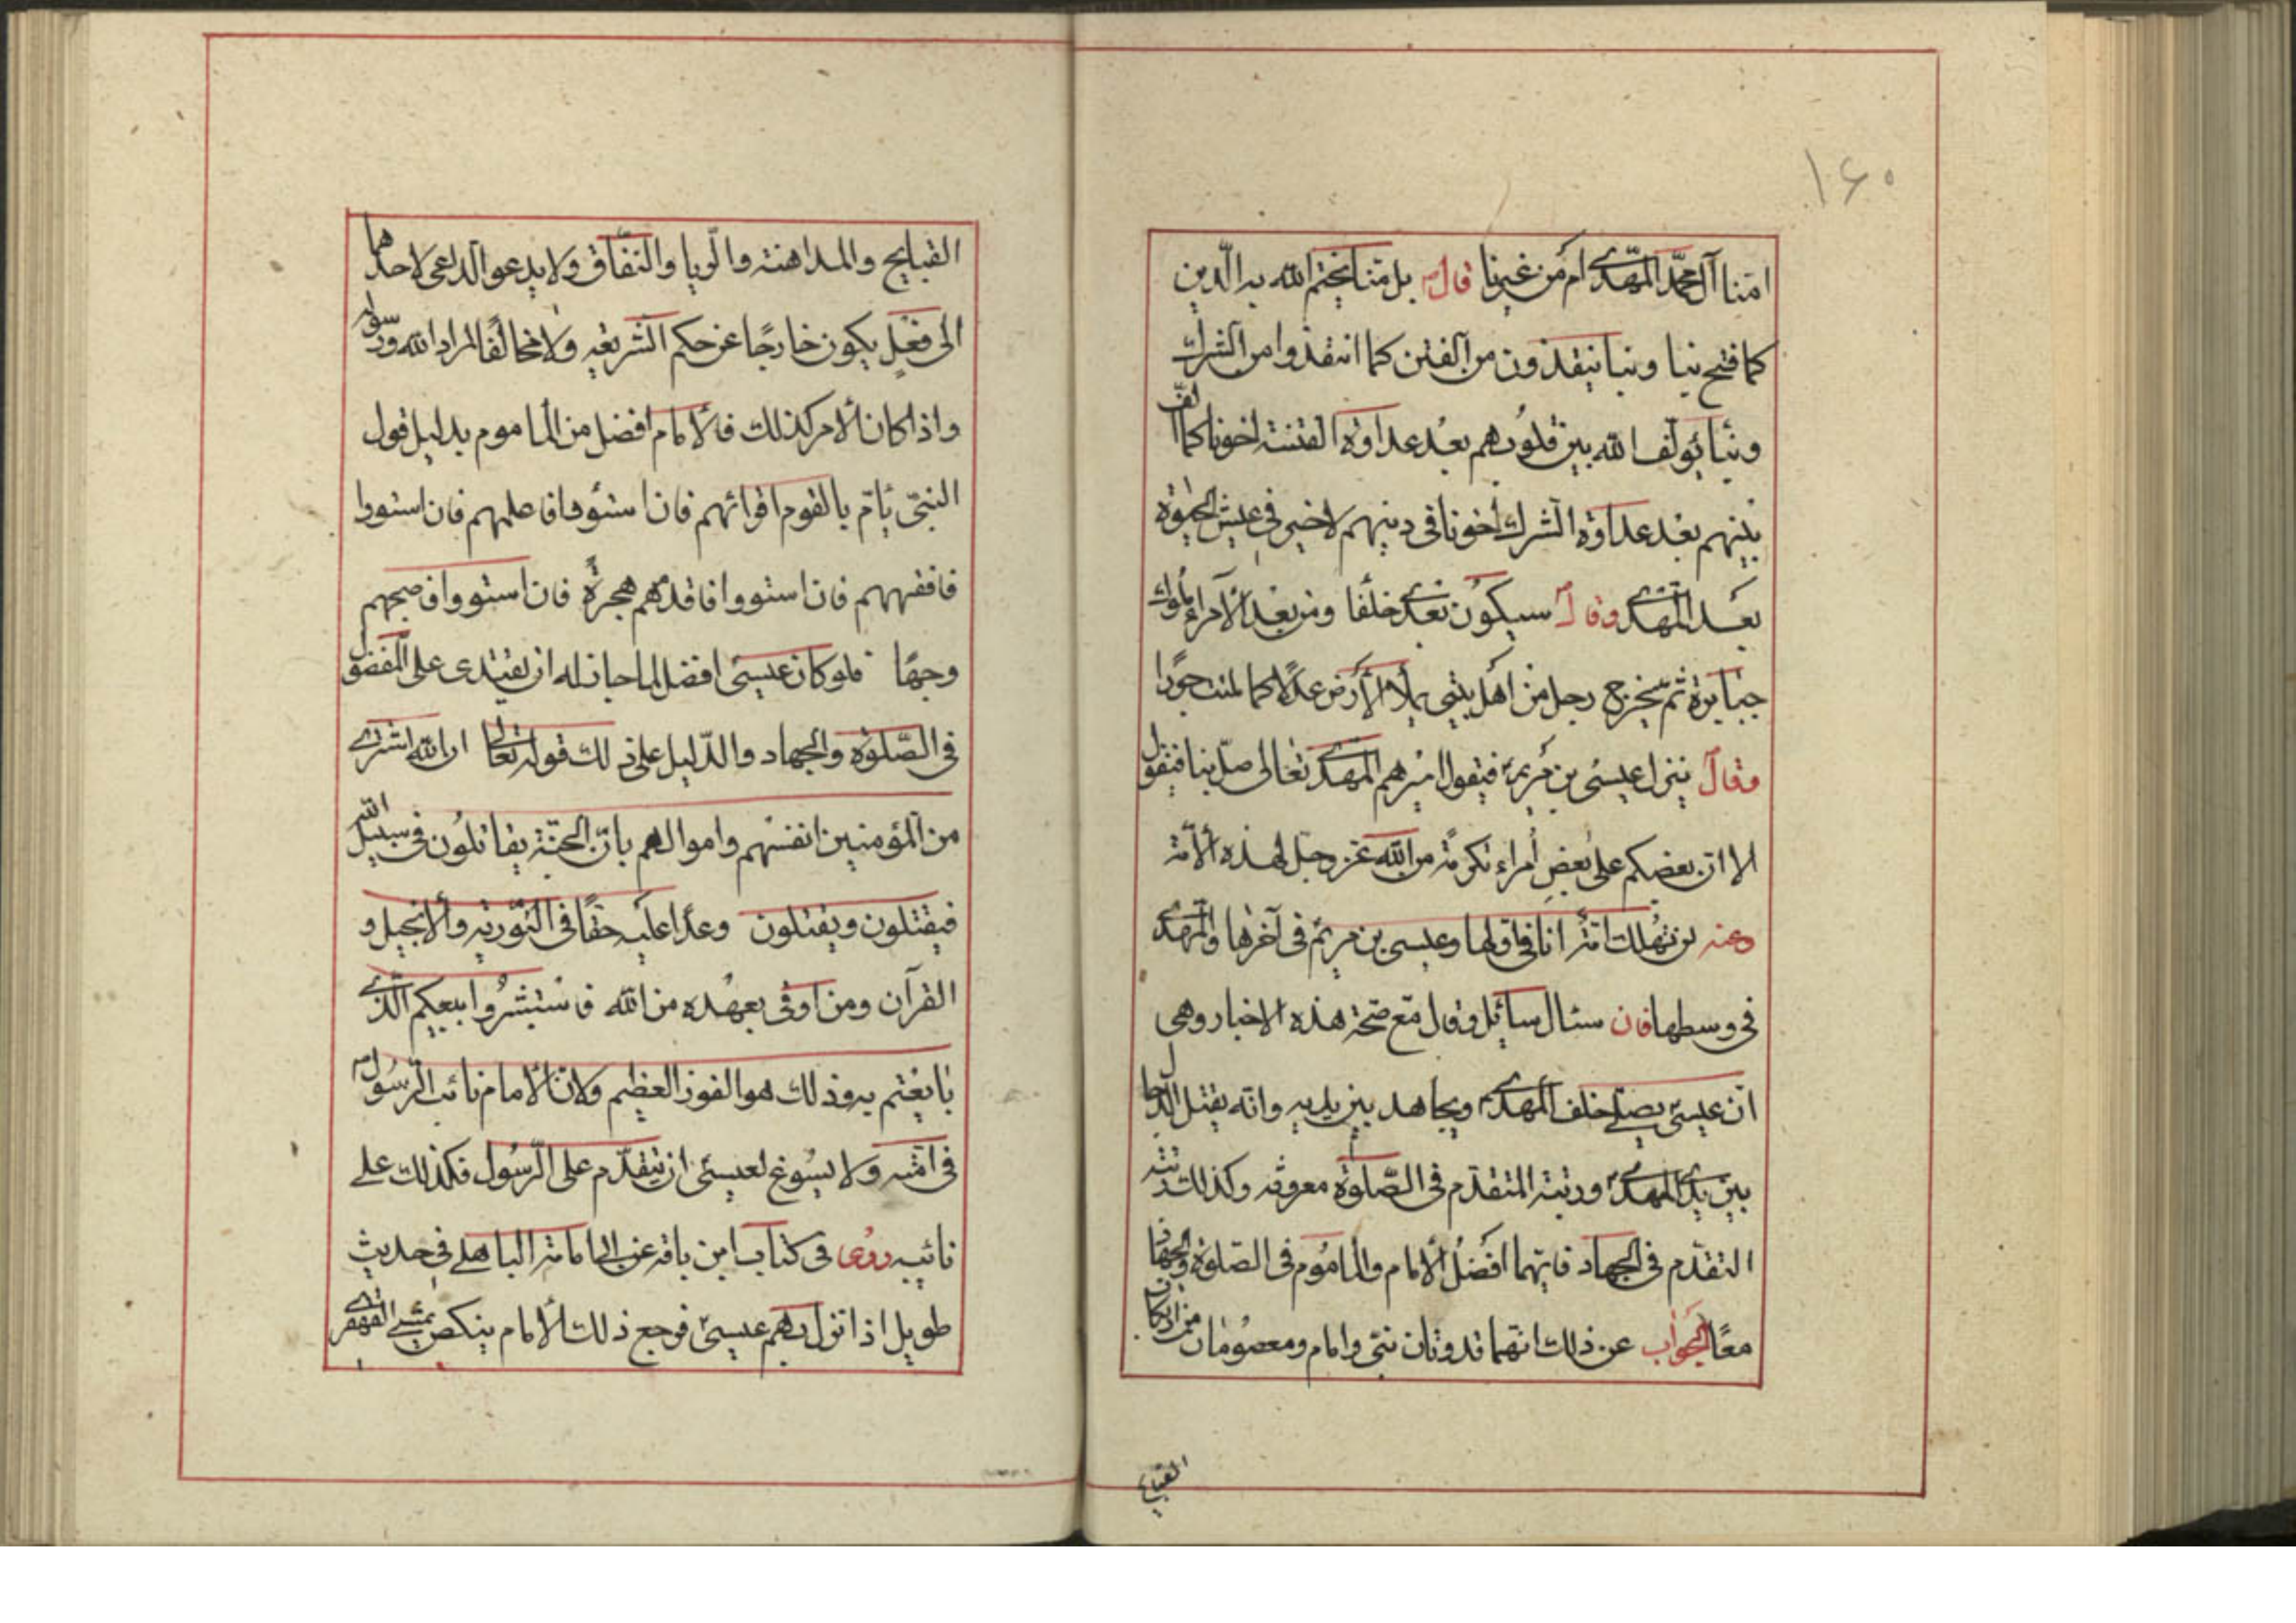 ۱۶۰
امنا آل محمّد المهدی ام من غیرنا قال بل منا یختم الله به الدین
کما فتح بنا و بنا ینقذون من الفتن کما انقذوا من الشرک
و بنا یؤلف الله بین قلوبهم بعد عداوة الفتنة اخونا کما الف
بینهم بعد عداوة الشرک اخونا فی دینهم لا خیر فی عیش الحیوة
بعد المهدی وقال سیکون بعدی خلفا ومن بعد الامراء ملوک
جبابرة ثم یخرج رجل من اهل بیتی یملاء الارض عدلا کما ملئت جورا
وقال ینزل عیسی بن مریم فیقول امیرهم المهدی تعالی صلّ بنا فیقول
الا ان بعضکم علی بعض امراء تکرمة من الله عز وجل لهذه الامة
وعنه لن تهلک امة انا فی اولها وعیسی بن مریم فی آخرها والمهدی
فی وسطها فان سئال سائل وقال مع صحة هذه الاخبار وهی
ان عیسی یصلی خلف المهدی ویجاهد بین یدیه وانه یقتل الدجال
بین یدی المهدی ورتبة المتقدم فی الصلوة معروفه وکذلک رتبة
التقدّم فی الجهاد فایهما افضل الامام والماموم فی الصلوة والجهاد
معًا الجواب عن ذلک انهما قدوتان نبی وامام ومعصومان من ارتکاب
القبایح
القبایح والمداهنة والریا والنفاق ولا یدعو الداعی لاحدهما
الی فعل یکون خارجًا عن حکم الشریعه ولا مخالفًا لمراد الله ورسوله
واذا کان الامر کذلک فالامام افضل من الماموم بدلیل قول
النبیّ یامّ بالقوم اقرائهم فان استووا فاعلمهم فان استووا
فافقههم فان استووا فاقدمهم هجرةً فان استووا فاصبحهم
وجهًا فلو کان عیسی افضل لما جاز له ان یقتدی علی المفضول
فی الصّلوة والجهاد والدّلیل علی ذلک قوله تعالی ان الله اشتری
من المؤمنین انفسهم واموالهم بان الجنّة یقاتلون فی سبیل الله
فیقتلون ویقتلون وعدًا علیه حقًا فی التّوریة والانجیل و
القرآن ومن اوفی بعهده من الله فاستبشروا ببیعکم الذی
بایعتم به وذلک هو الفوز العظیم ولان الامام نائب الرسول
فی امّته ولا یسوغ لعیسی ان یتقدّم علی الرّسول فکذلک علی
نائبه روی فی کتاب ابن باقه عن ابی امامة الباهلی فی حدیث
طویل اذا نزل بهم عیسی فرجع ذلک الامام ینکص یمشی القهقری